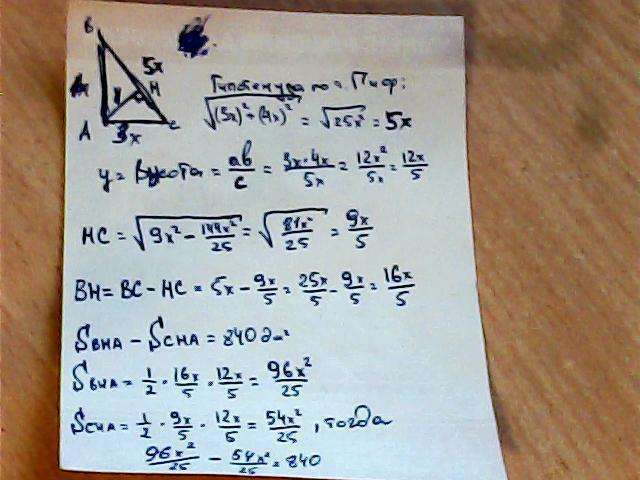 B
5x
y
H
A
3x
C
Гипотенуза по т. Пиф:
√((3x)²+(4x)²) = √25x² = 5x
y = высота = ab/c = 3x·4x/5x = 12x²/5x = 12x/5
HC = √(9x² - 144x²/25) = √(81x²/25) = 9x/5
BH = BC - HC = 5x - 9x/5 = 25x/5 - 9x/5 = 16x/5
S BHA - S CHA = 840 дм²
S BHA = 1/2 · 16x/5 · 12x/5 = 96x²/25
S CHA = 1/2 · 9x/5 · 12x/5 = 54x²/25, тогда
96x²/25 - 54x²/25 = 840